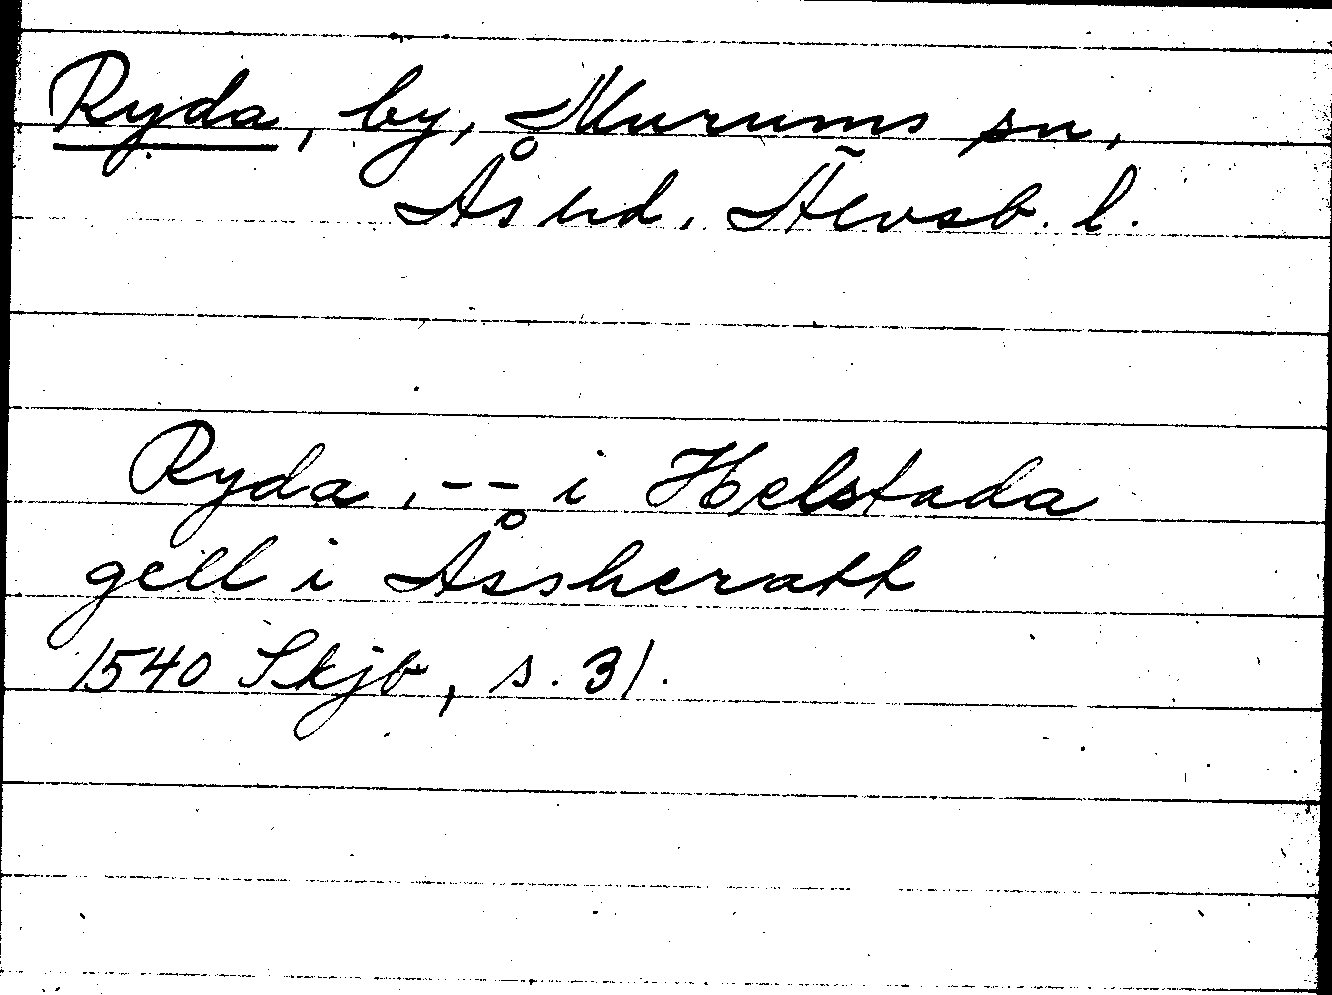 Ryda, by, Murums sn,
Ås hd. Älvsb. l.
Ryda, -- i Helstada
gell i Åssheratt
1540 Skjb, s. 31.